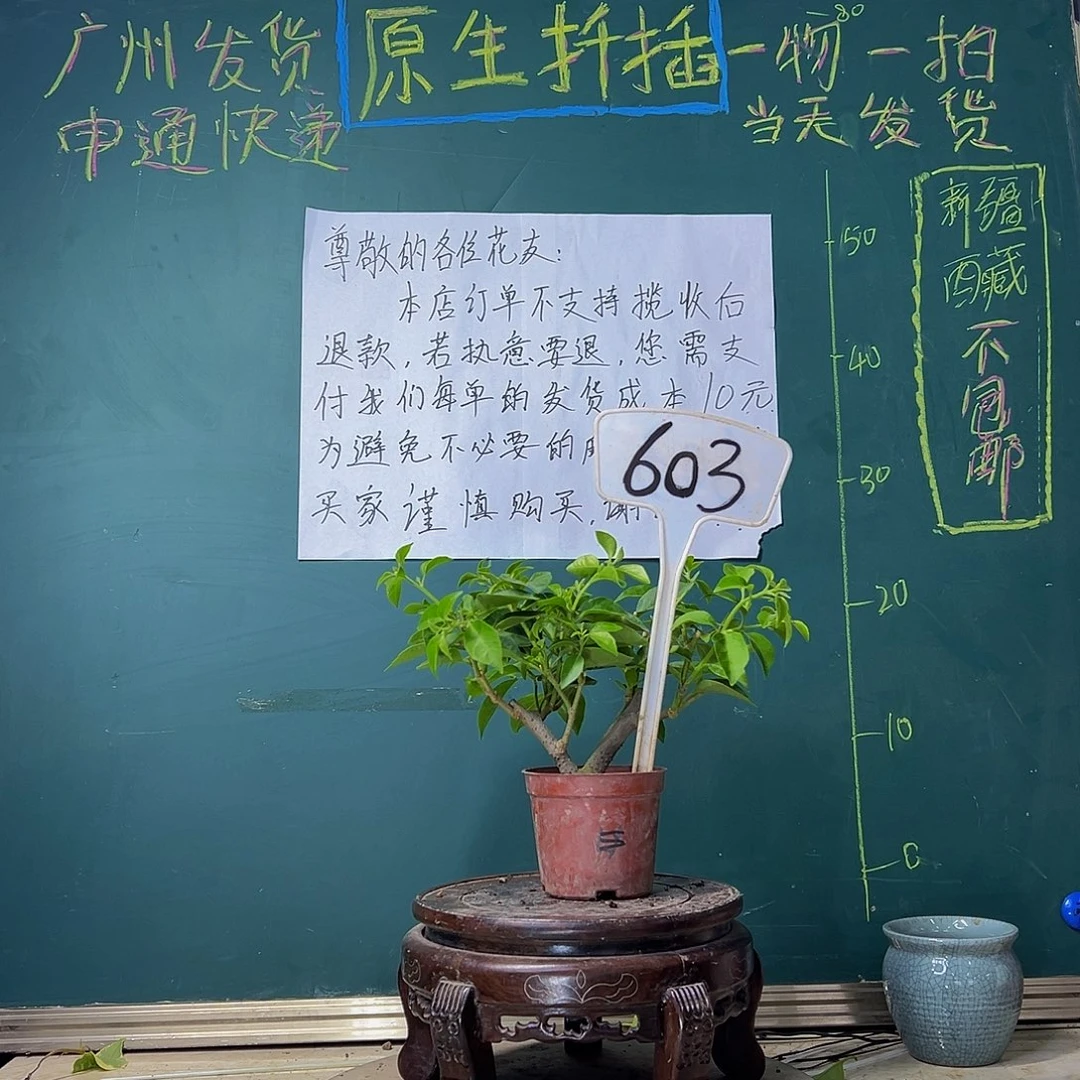 广州发货
原生扦插
一物一拍
80
申通快递
当天发货
新疆
西藏
不
包
邮
尊敬的各位花友:
本店订单不支持揽收后
退款,若执意要退,您需支
付我们每单的发货成本10元
为避免不必要的
买家谨慎购买,谢
603
50
40
30
20
10
0